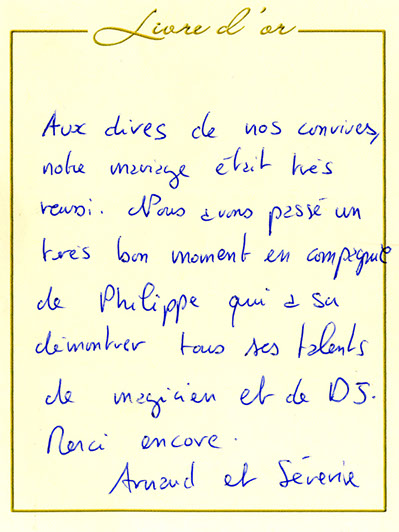 Livre d'or
Aux dires de nos convives,
notre mariage était très
reussi. Nous avons passé un
très bon moment en compagnie
de Philippe qui a su
démontrer tous ses talents
de magicien et de DJ.
Merci encore.
Arnaud et Séverine